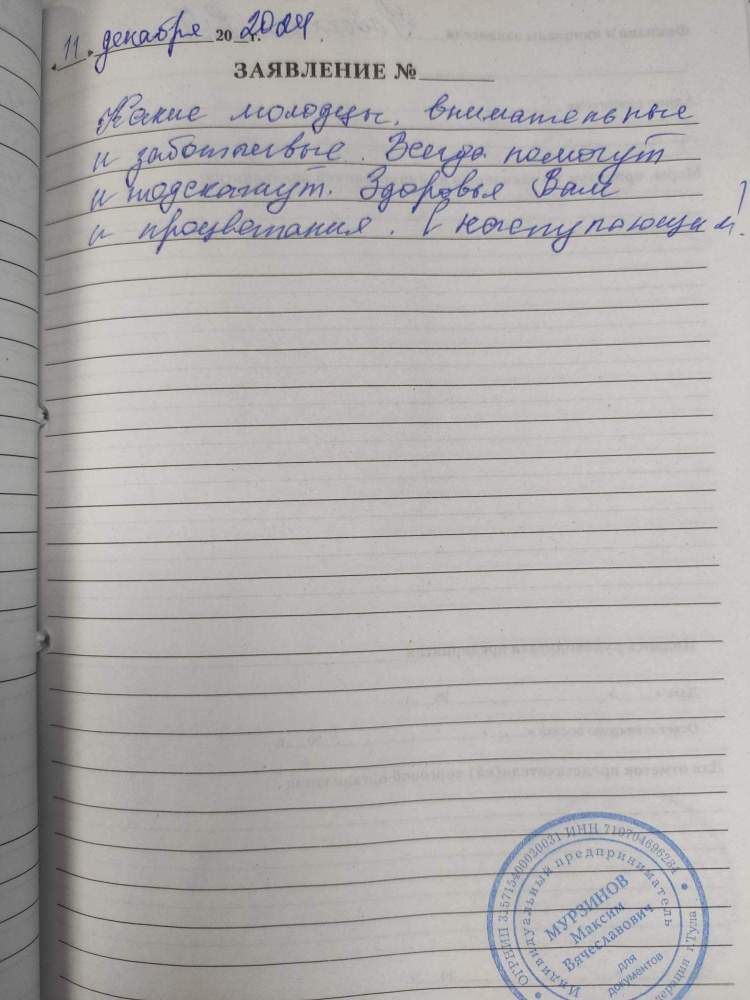 « 11 » декабря 20 2024 г.
ЗАЯВЛЕНИЕ №
Какие молодцы, внимательные
и заботливые. Всегда помогут
и подскажут. Здоровья Вам
и процветания. С наступающим!
ОГРНИП 315715400020031 ИНН 710704696284
Индивидуальный предприниматель
МУРЗИНОВ
Максим
Вячеславович
для
документов
г.Тула